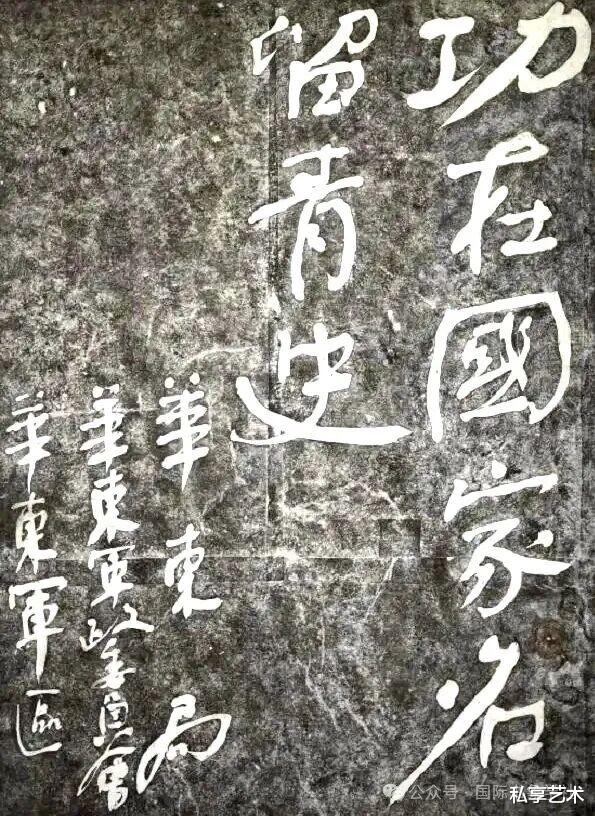 功在國家名
留青史
華東局
華東軍政委員會
華東軍區
公众号·国际
私享艺术